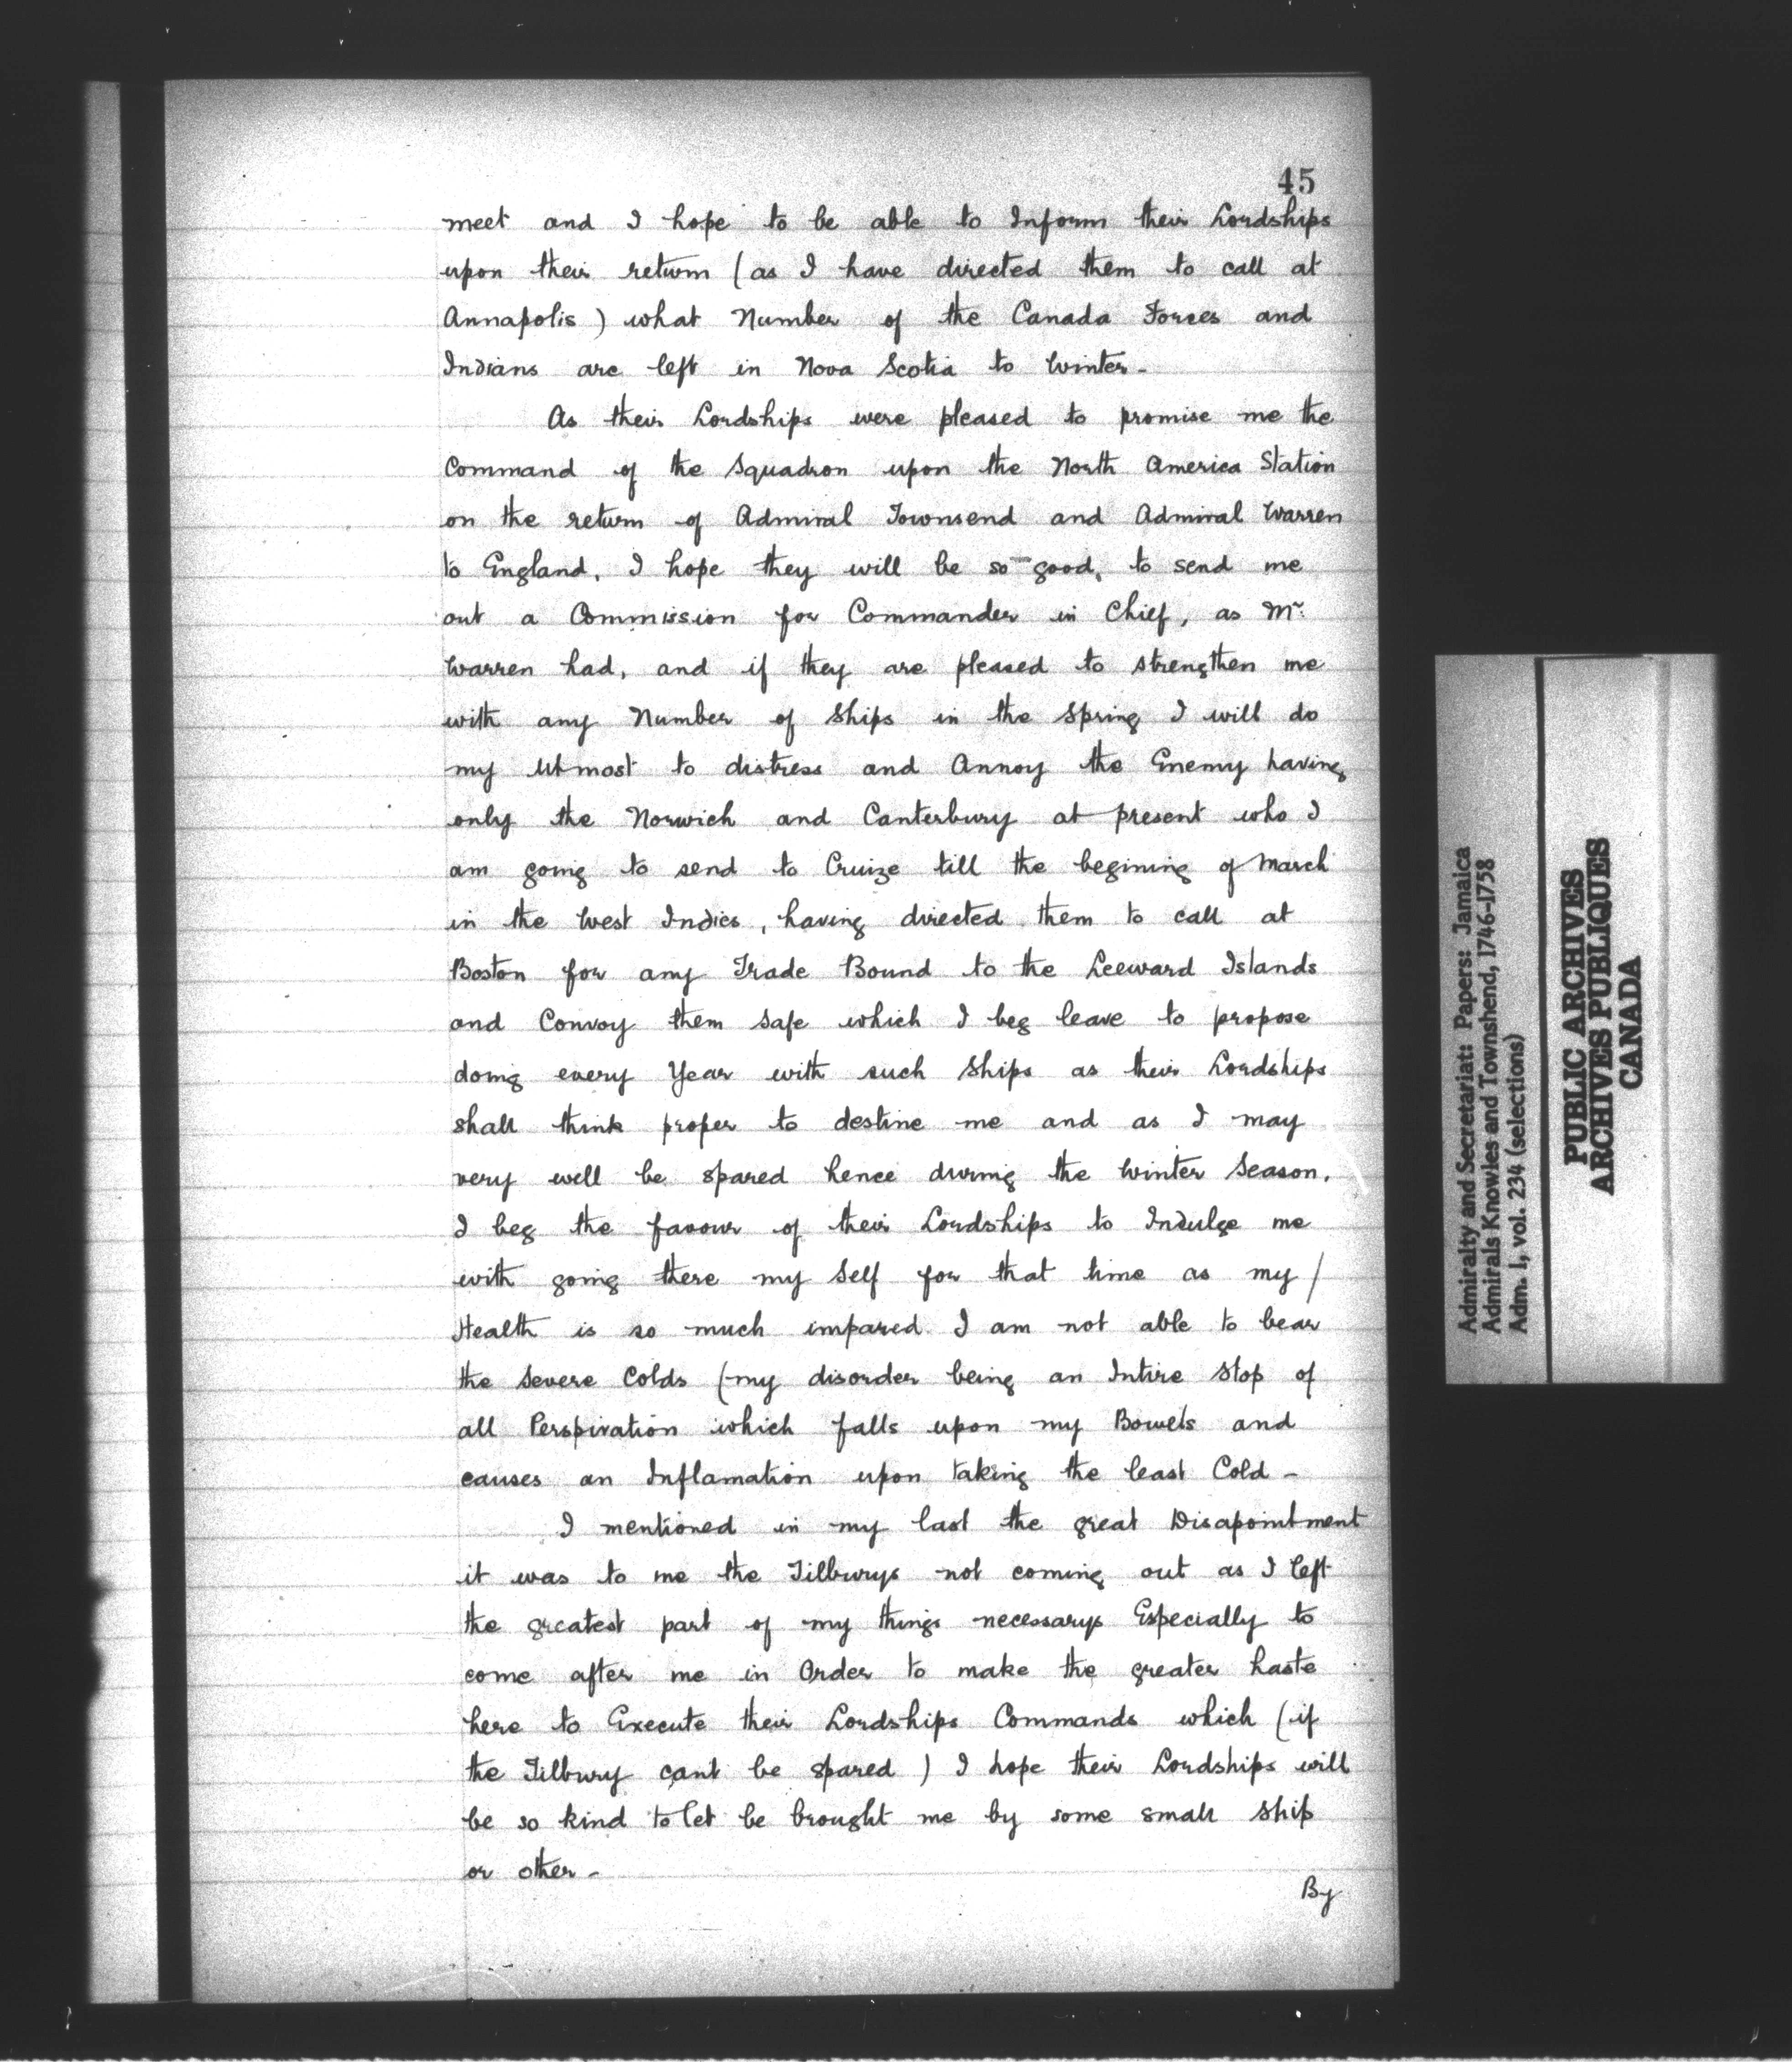 45
meet and I hope to be able to Inform their Lordships
upon their return (as I have directed them to call at
Annapolis) what Number of the Canada Forces and
Indians are left in Nova Scotia to Winter -
As their Lordships were pleased to promise me the
Command of the Squadron upon the North America Station
on the return of Admiral Townsend and Admiral Warren
to England, I hope they will be so good, to send me
out a Commission for Commander in Chief, as Mr.
Warren had, and if they are pleased to strengthen me
with any Number of Ships in the Spring I will do
my Utmost to distress and Annoy the Enemy having
only the Norwich and Canterbury at present who I
am going to send to Cruize till the begining of March
in the West Indies, having directed them to call at
Boston for any Trade Bound to the Leeward Islands
and Convoy them safe which I beg leave to propose
doing every Year with such Ships as their Lordships
shall think proper to destine me and as I may
very well be spared hence during the Winter Season.
I beg the favour of their Lordships to Indulge me
with going there my Self for that time as my /
Health is so much impared I am not able to bear
the Severe Colds (my disorder being an Intire Stop of
all Perspiration which falls upon my Bowels and
causes an Inflamation upon taking the least Cold -
I mentioned in my last the great Disapointment
it was to me the Tilburys not coming out as I left
the greatest part of my things necessarys Especially to
come after me in Order to make the greater haste
here to Execute their Lordships Commands which (if
the Tilbury cant be spared) I hope their Lordships will
be so kind to let be brought me by some small Ship
or other -
By
Admiralty and Secretariat: Papers: Jamaica
Admirals Knowles and Townshend, 1746-1758
Adm. 1, vol. 234 (selections)
PUBLIC ARCHIVES
ARCHIVES PUBLIQUES
CANADA